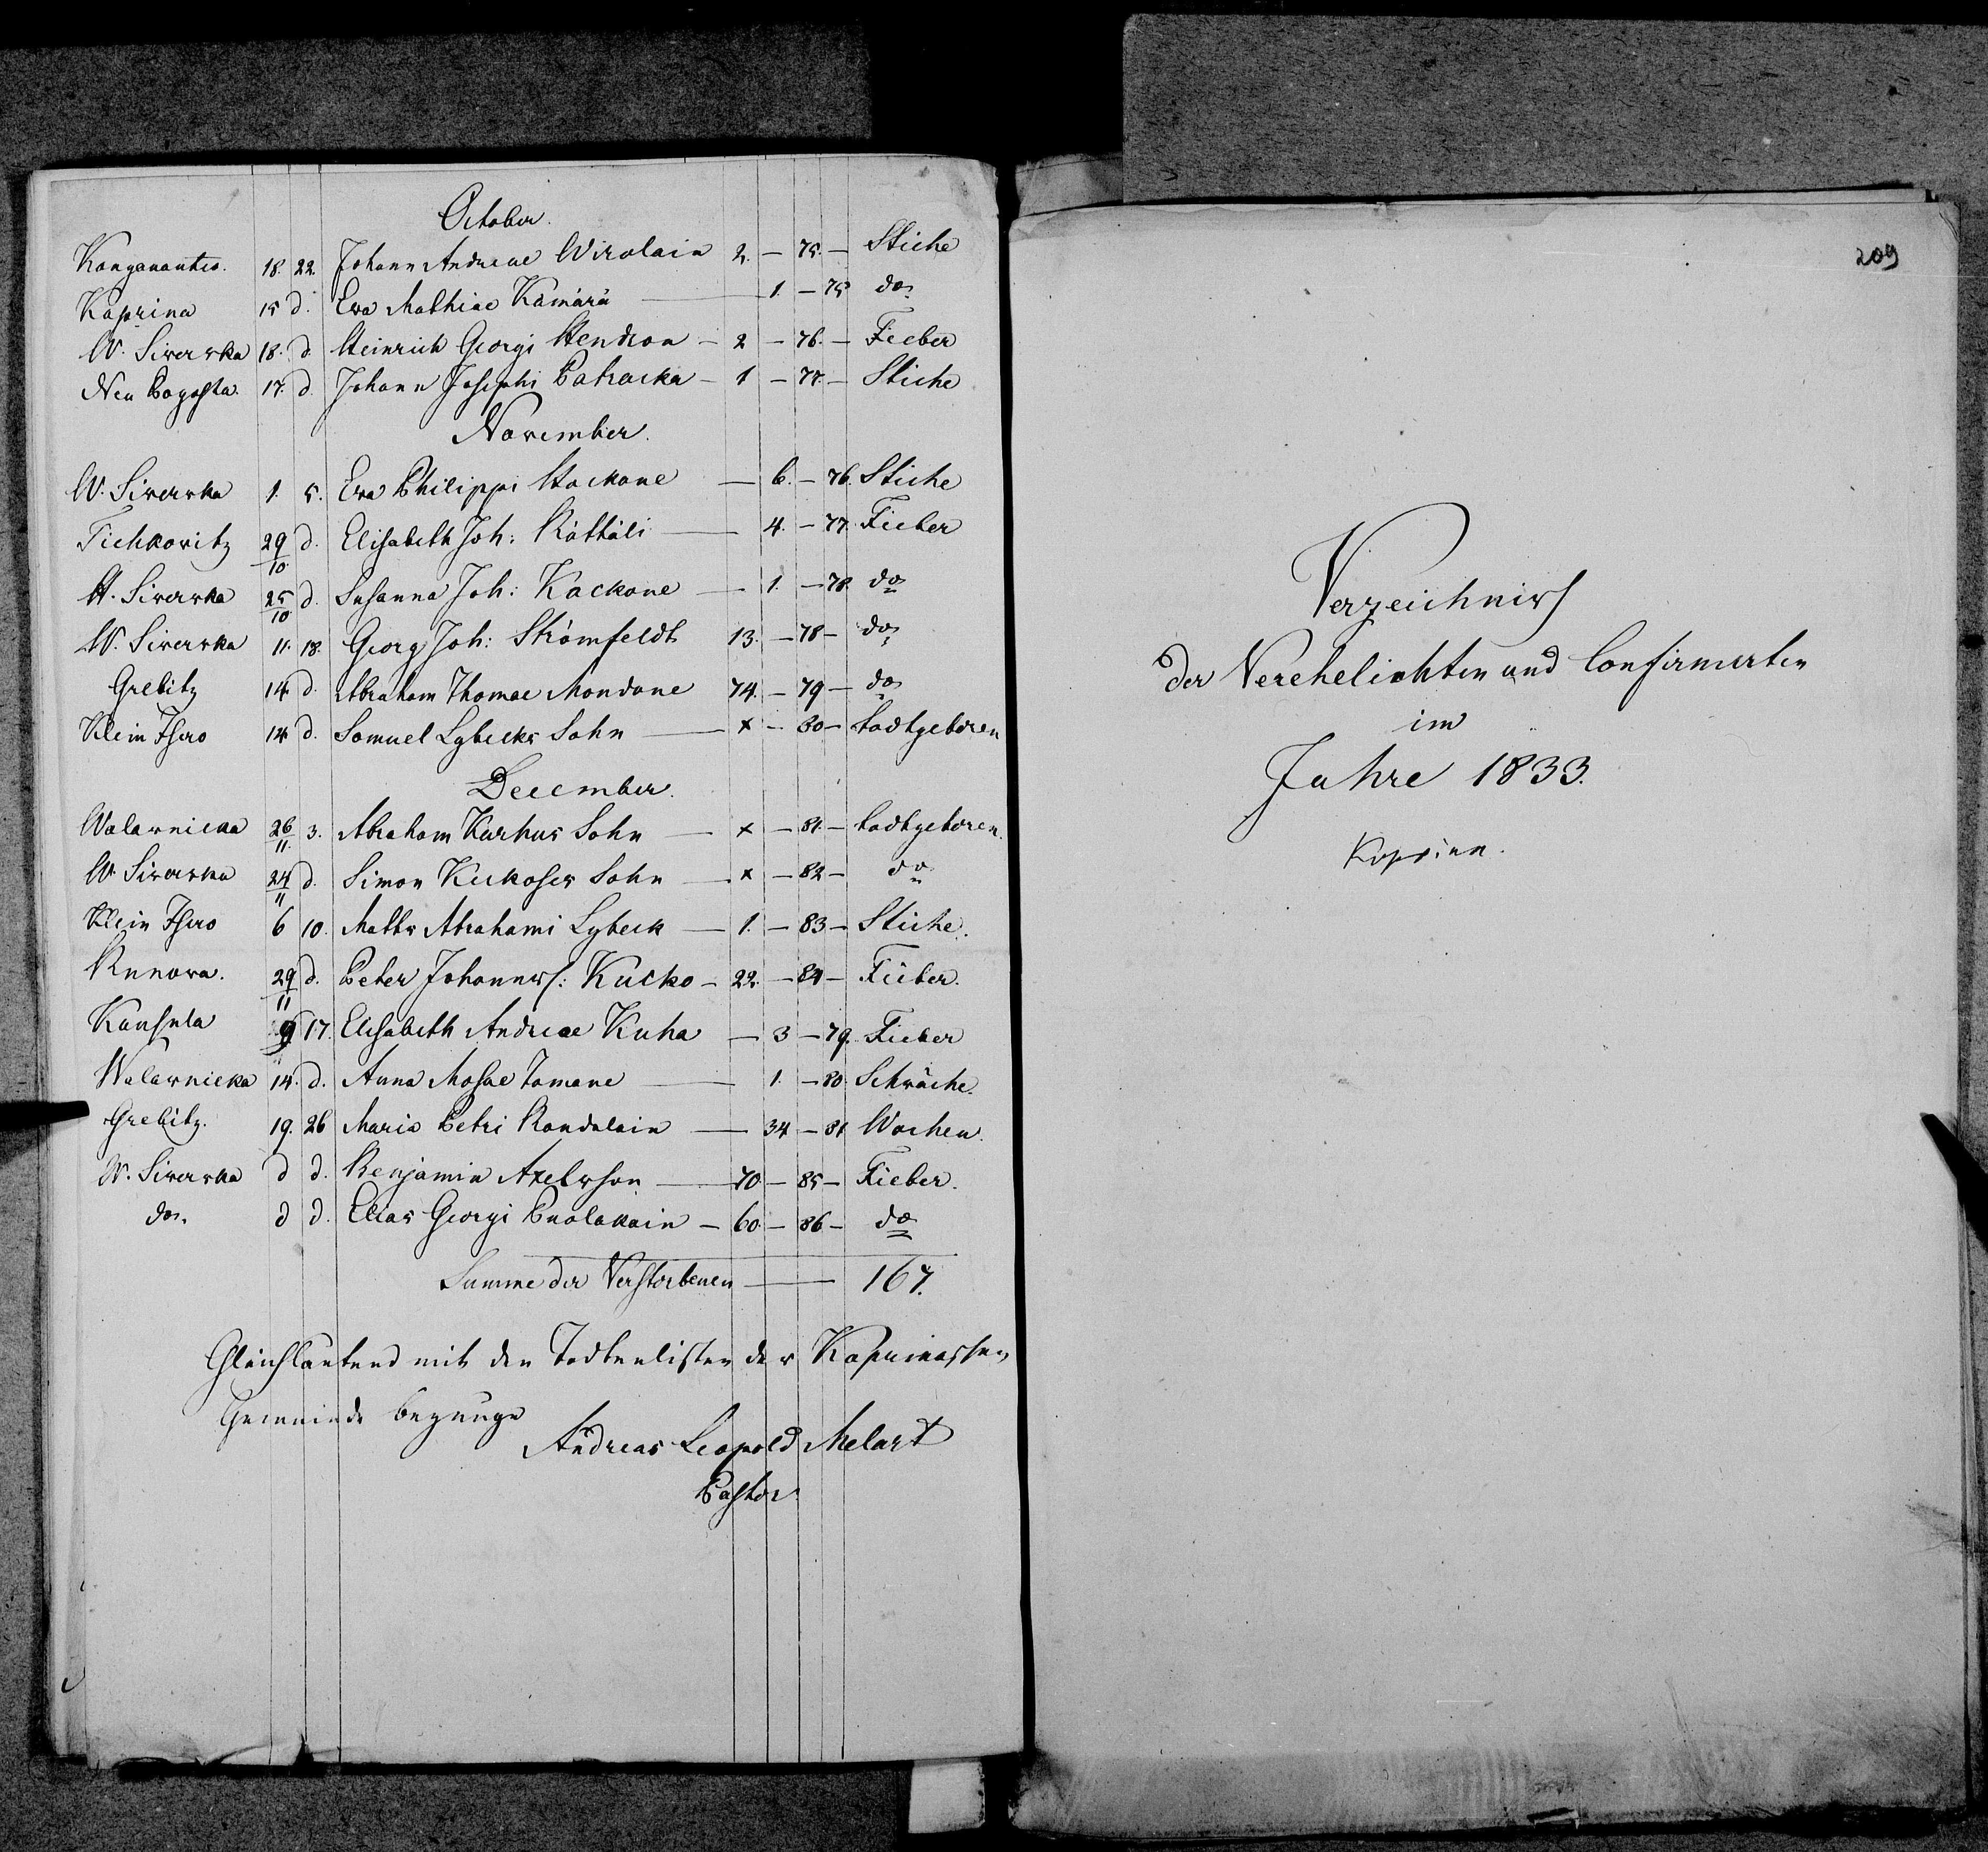 October.
Kanganantio. 18. 22. Johann Andreae Wirolain 2. – 75. – Stiche
Kaprina 15 d. Eva Mathiae Kämärä — 1. – 75 do
W. Siverska 18. d. Heinrich Georgi Hendron – 2 – 76. – Fieber
Neu Pogosta. 17. d. Johann Josephi Patracka – 1 – 77. – Stiche
November.
W. Siverska 1. 5. Eva Philippi Hackane — 6. – 76. Stiche
Tichkovitz 29/10 d. Elisabeth Joh: Rättäli — 4. – 77. Fieber
H. Siverska 25/10 d. Susanna Joh: Kackone — 1. – 78. do
W. Siverska 11. 18. Georg Joh: Strömfeldt 13. – 78 – do
Grebitz 14. d. Abraham Thomae Mondone 74. – 79 – do
Klein Isero 14. d. Samuel Lybecks Sohn — x – 80 – todtgeboren
December.
Walasnicka 26/11. 3. Abraham Karhus Sohn — x – 81. – todtgeboren.
W. Siverska 24/11 d. Simon Kuckoses Sohn — x – 82 – do
Klein Isero 6 10. Matts Abrahami Lybeck — 1. – 83 – Stiche.
Runova. 29/11 d. Peter Johanniss: Kucko – 22. – 84 – Fieber.
Kunsula 9 17. Elisabeth Andreae Kuha — 3 – 79. Fieber
Walasnicka 14. d. Anna Mosae Tomane — 1. – 80. Schwäche.
Grebitz. 19. 26 Maria Petri Randalain — 34 – 81 Wochen.
W. Siverska d d. Benjamin Axelsson — 70 – 85 – Fieber.
do. d d. Elias Georgi Puolakain – 60 – 86 – do
Summe der Verstorbenen — 167.
Gleichlautend mit den Todtenlisten der Kaprinaschen
Gemeinde bezeuge
Andreas Leopold Melart
Pastor.
209
Verzeichniss
der Verehelichten und Confirmirten
im
Jahre 1833.
Koprina.